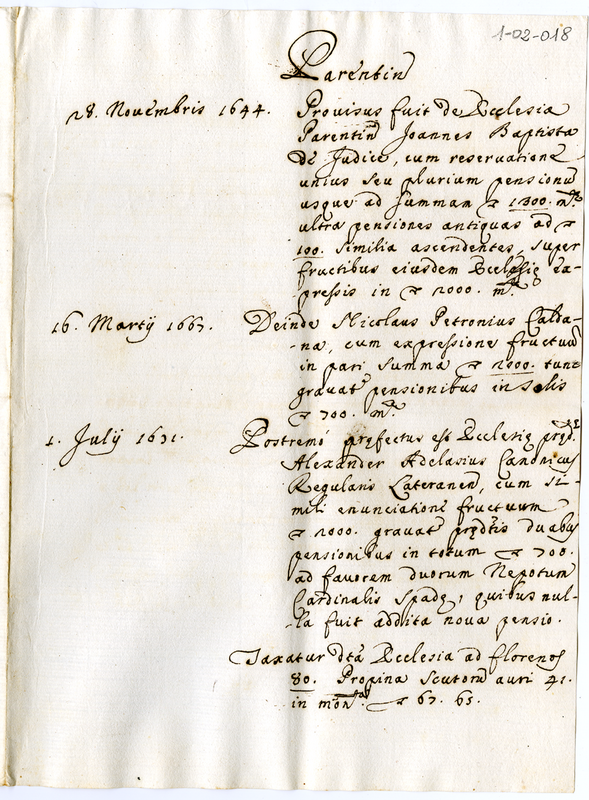 1-02-018
Parentin
28. Novembris 1644. Provisus fuit de Ecclesia
Parentin Joannes Baptista
de Judice, cum reservatione
unius seu plurium pensionu
usque ad summam 1300. mta
ultra pensiones antiquas ad
100. similia ascendentes, super
fructibus eiusdem Ecclesię ex-
pressis in 2000. mta
16. Martij 1667. Deinde Nicolaus Petronius Calda-
-na, cum expressione fructuu
in pari summa 2000. tunc
gravat pensionibus in solis
700. mta
1. Julij 1631. Postremo pręfectus est Ecclesię pręd.
Alexander Adelasius Canonicus
Regularis Lateranen, cum si-
mili enunciatione fructuum
2000. gravat prędtis duabus
pensionibus in totum 700.
ad favorem duorum Nepotum
Cardinalis Spadę, quibus nul-
-la fuit addita nova pensio.
Taxatur dta Ecclesia ad florenos
80. Propina scutoru auri 41.
in mon. 67. 65.